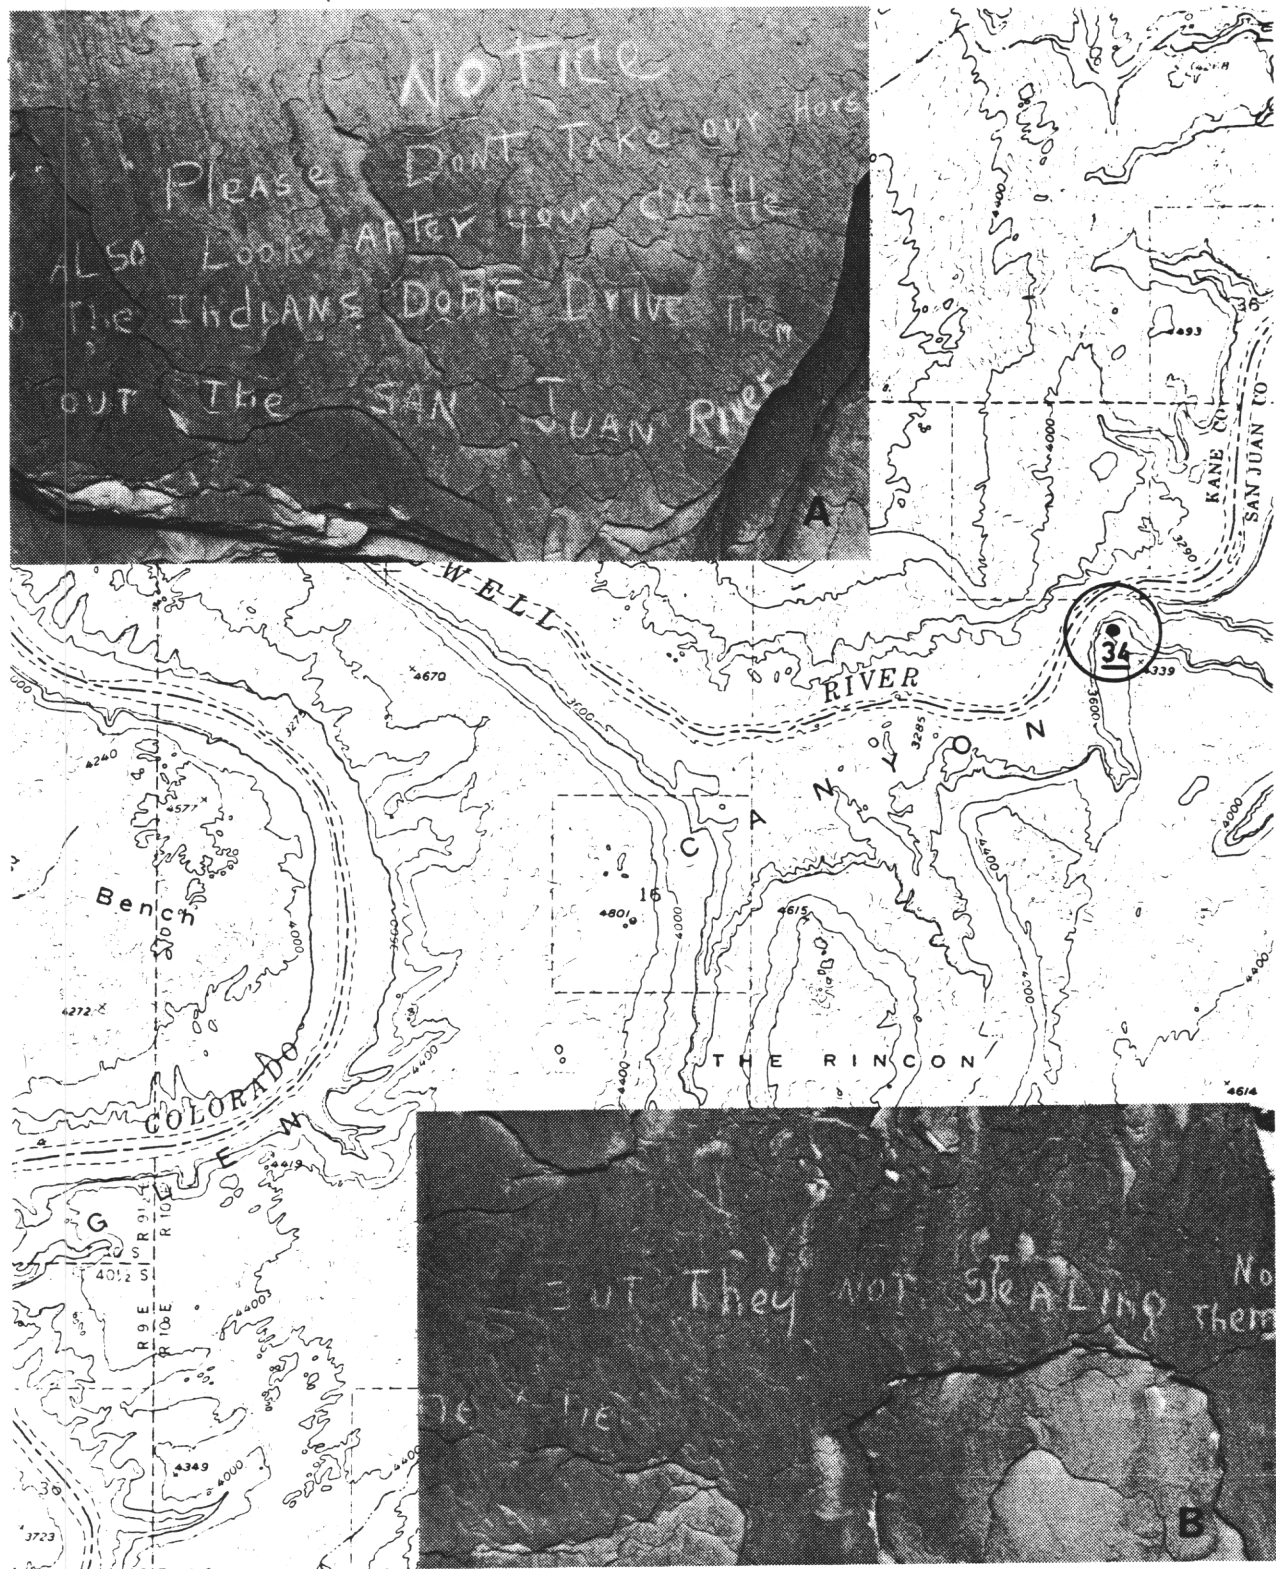 Notice
Please Dont Take our Hors
ALSO Look After your cattle
The Indians Done Drive Them
out The San Juan River
A
WELL
RIVER
CANYON
KANE CO
SAN JUAN CO
36
4493
4000
4000
3260
34
4339
3600
3285
4670
3600
3275
4240
4577
Bench
4000
3600
4272
16
4801
4000
4615
4400
4000
4000
4400
THE RINCON
4400
4400
4614
COLORADO
GLEN
4419
R 9 E
R 10 E
40½ S
R 9 E
R 10 E
4400
4349
4000
4400
36
3723
BUT They NOT STEALING No
Them
B